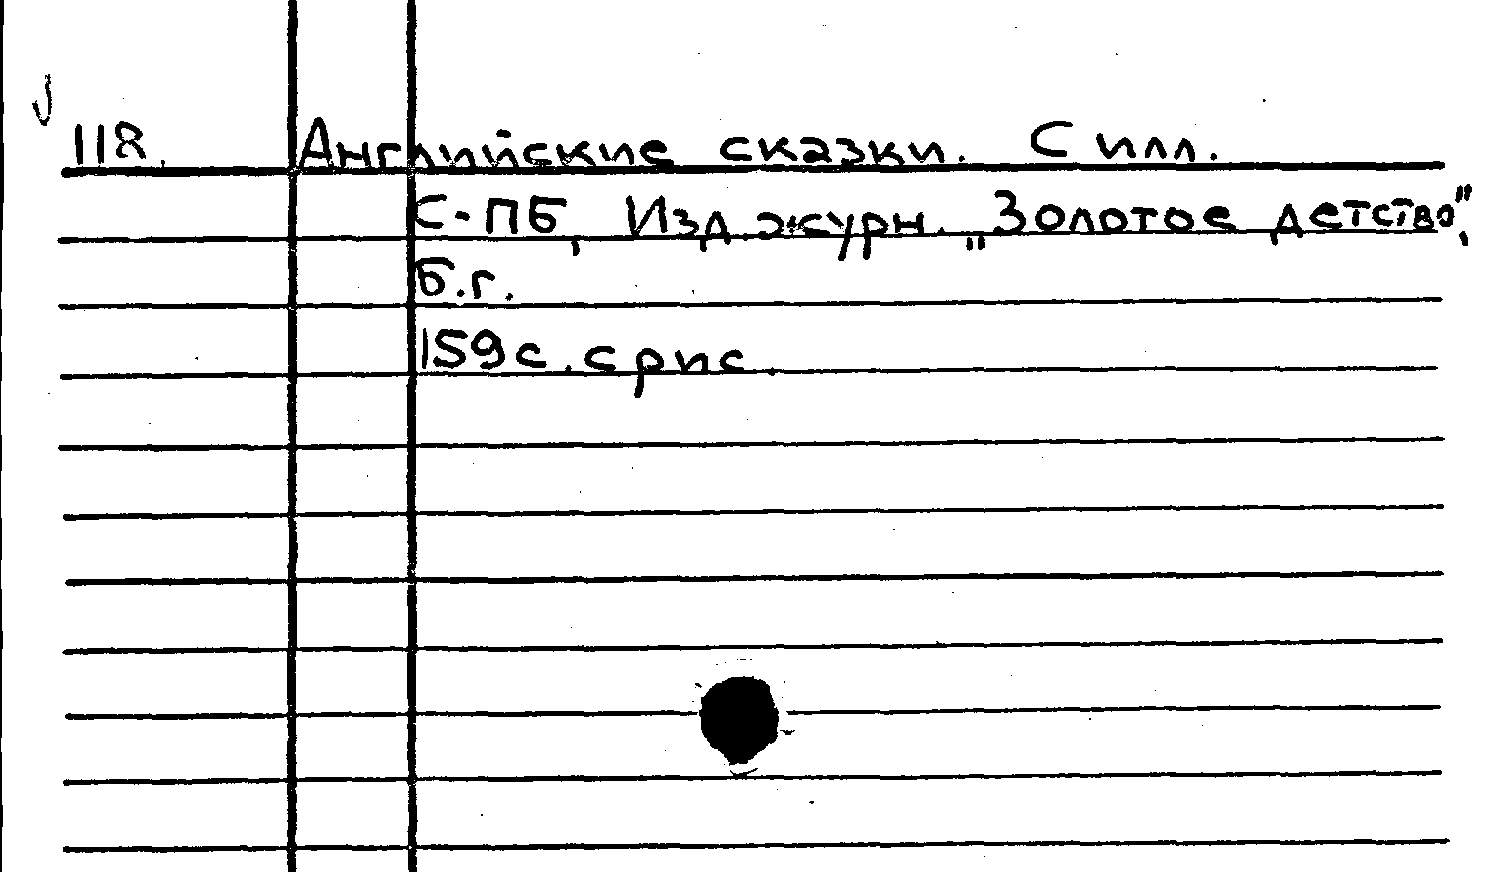 118. Английские сказки. С илл.
С-ПБ, Изд. журн. „Золотое детство",
б.г.
159с. с рис.